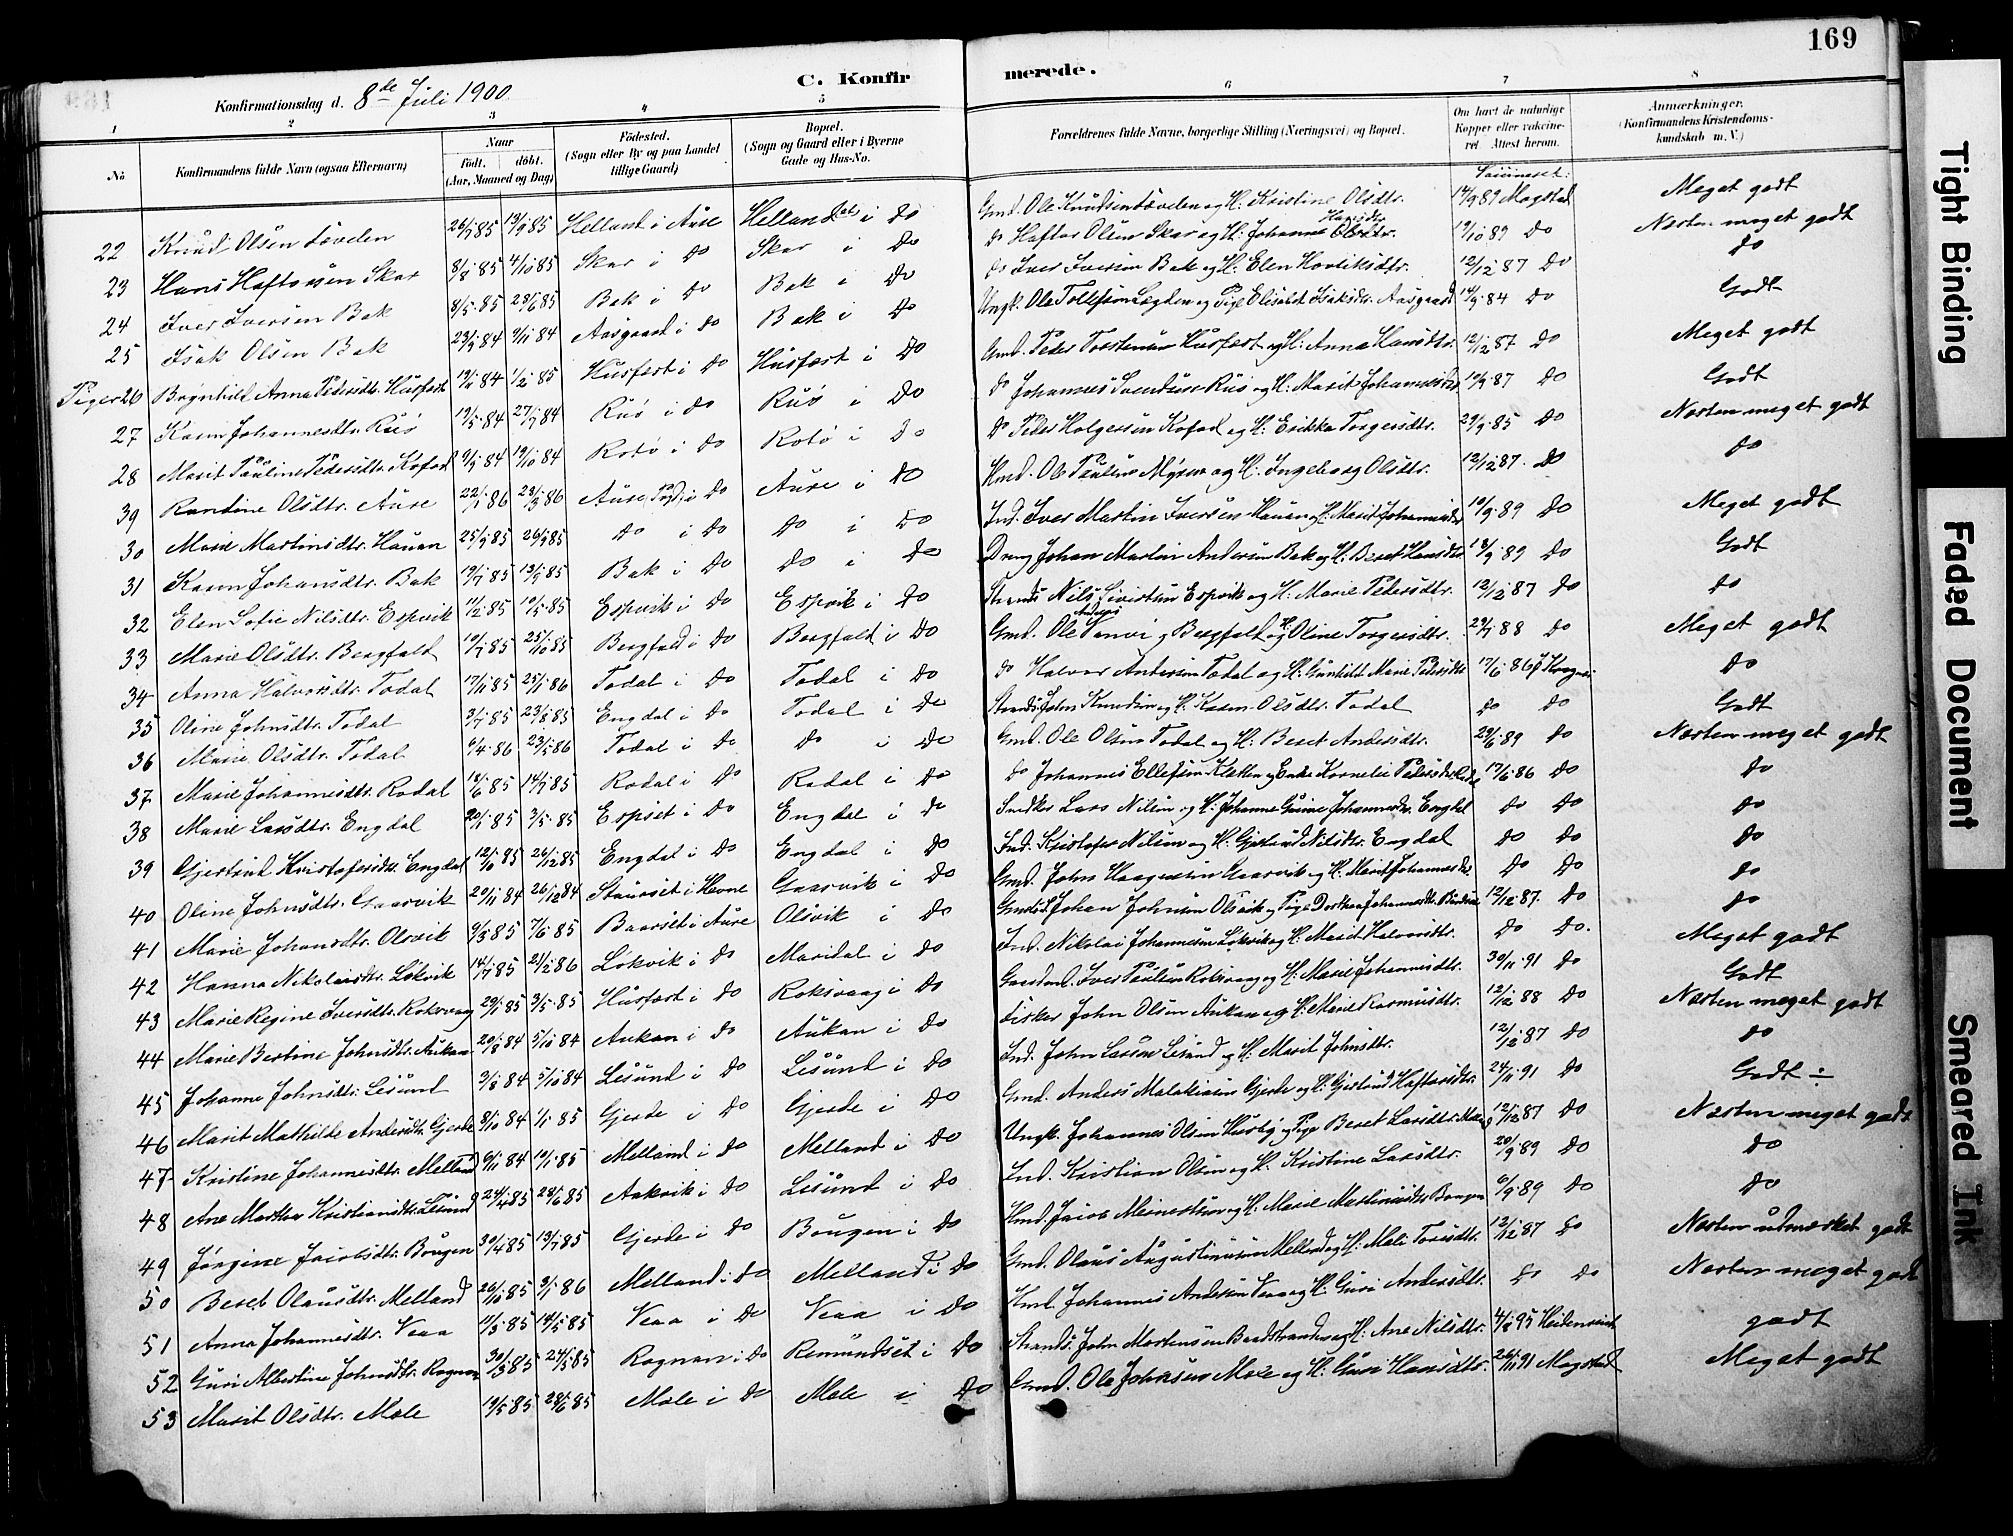 169
C. Konfir merede.
Konfirmationsdag d. 8de Juli 1900.
1 2 3 4 5 6 7 8
No
Konfirmandens fulde Navn (ogsaa Efternavn)
Naar
født. døbt.
(Aar, Maaned og Dag)
Fødested.
(Sogn eller By og paa Landet
tillige Gaard)
Bopæl.
(Sogn og Gaard eller i Byerne
Gade og Hus-No.
Forældrenes fulde Navne, borgerlige Stilling (Næringsvei) og Bopæl.
Om havt de naturlige
Kopper eller vaksine-
ret. Attest herom.
Anmærkninger.
(Konfirmandens Kristendoms-
kundskab m. V.)
22 Knud Olsen 26/7 85 13/9 85 Helland i Aure Helland i Do Gmd. Ole Knudsen og H. Kristine Olsdtr. 14/9 89 Magstad Meget godt
23 Hans Haftorsen Skar 8/8 85 4/10 85 Skar i Do Skar i Do Do Haftor Olsen Skar og H. Johanna Hansdtr. 19/10 89 Do Næsten meget godt
24 Iver Iversen Bak 8/5 85 28/6 85 Bak i Do Bak i Do Do Iver Iversen Bak og H. Elen 12/12 87 Do Do
25 Isak Olsen Bak 23/9 84 9/11 84 Aasgaard i Do Bak i Do Ungk. Ole Tollefsen og Pige Elisabet Isaksdtr. Aasgaard 14/9 84 Do Godt
Piger 26 Brynhild Anna Pedersdtr. Husfest 19/11 84 1/2 85 Husfest i Do Husfest i Do Gmd. Peder Torstensen Husfest og H. Anna Hansdtr. 12/12 87 Do Meget godt
27 Karen Johannesdtr. Ruø 19/5 84 27/7 84 Ruø i Do Ruø i Do Do Johannes Ruø og H. Marit Johannesdtr. 10/9 87 Do Godt
28 Marit Pauline Pedersdtr. 9/9 84 19/10 84 Rotø i Do Rotø i Do Do Peder Holgersen og H. Erikka Torgersdtr. 29/9 85 Do Næsten meget godt
39 Randine Olsdtr. Aure 22/1 86 28/3 86 Aure i Do Aure i Do Hmd. Ole Paulsen Myren og H. Ingeborg Olsdtr. 12/12 87. Do Do
30 Marie Martinsdtr. Hauan 25/7 85 26/9 85 Do i Do Do i Do Ind. Iver Martin Iversen Hauan og H. Marit Johannesdtr. 19/9 89 Do Meget godt
31 Karen Johansdtr. Bak 19/7 85 13/9 85 Bak i Do Do i Do Dreng Johan Martin Andersen Bak og H. Beret Hansdtr. 18/9 89 Do Godt
32 Elen Sofie Nilsdtr. Espvik 11/2 85 10/5 85 Espvik i Do Espvik i Do Strands. Nils Sivertsen Espvik og H. Marie Pedersdtr. 12/12 87 Do Do
33 Marie Olsdtr. Bergfald 10/7 85 25/10 85 Bergfald i Do Bergfald i Do Gmd. Ole Anders Bergfald og H. Oline Torgersdtr. 29/7 88 Do Meget godt
34 Anna Halvorsdtr. Todal 17/11 85 25/1 86 Todal i Do Todal i Do Do Halvor Andersen Todal og H. Gunhild Marie Pedersdtr. 17/6 86 Do
35 Oline Johnsdtr. Todal 3/7 85 23/8 85 Engdal i Do Todal i Do Strands. John Knudsen og H. Karen Olsdtr. Todal Do Do Godt
36 Marie Olsdtr. Todal 6/4 86 23/5 86 Todal i Do Do i Do Gmd. Ole Olsen Todal og H. Beret Andersdtr. 29/6 89 Do Næsten meget godt
37 Marie Johannesdtr. Rodal 18/6 85 14/7 85 Rodal i Do Rodal i Do Do Johannes Ellefsen Kletten og Enke Kornelie Pedersdtr. Rodal 17/6 86 Do Do
38 Marie Larsdtr. Engdal 20/1 85 3/5 85 Espset i Do Engdal i Do Lars Nilsen og H. Johanne Johannesdtr. Engdal Do Do Do
39 Gjertrud Kristofersdtr. Engdal 12/10 85 26/12 85 Engdal i Do Engdal i Do Ind. Kristofer Nilsen og H. Gjertrud Nilsdtr. Engdal Do Do Do
40 Oline Johnsdtr. Gaasvik 20/11 84 26/12 84 Staurset i Hevne Gaasvik i Do Gmd. John Haagensen Gaasvik og H. Marit Johannesdtr. Do Do Do
41 Marie Johansdtr. Olsvik 9/3 85 7/6 85 Baarset i Aure Olsvik i Do Johan Johnsen Olsvik og Pige Dorthea Johannesdtr. 12/12 87. Do Do
42 Hanna Nikolaisdtr. Løkvik 14/7 85 21/2 86 Løkvik i Do Mardal i Do Ind. Nikolai Johannesen Løkvik og H. Marit Halvorsdtr. Do Do. Meget godt
43 Marie Regine Iversdtr. Roksvaag 29/1 85 3/5 85 Husfest i Do Roksvaag i Do Iver Paulsen Roksvaag og H. Marie Johannesdtr. 30/11 91 Do Godt
44 Marie Bertine Johnsdtr. Aukan 20/8 84 5/10 84 Aukan i Do Aukan i Do Fisker John Olsen Aukan og H. Marie Rasmusdtr. 12/12 88 Do Næsten meget godt
45 Johanne Johnsdtr. Lesund 3/8 84 5/10 84 Lesund i Do Lesund i Do Ind. John Larsen Lesund og H. Marit Johnsdtr. 12/12 87 Do Do
46 Marit Mathilde Andersdtr. Gjerde 8/10 84 1/1 85 Gjerde i Do Gjerde i Do Gmd. Anders Malakiasen Gjerde og H. Gjertrud Haftorsdtr. 24/11 91 Do Godt ÷
47 Kristine Johannesdtr. Melland 9/11 84 10/1 85 Melland i Do Melland i Do Ungk. Johannes Olsen Husby og Pige Beret Larsdtr. 12/12 87 Do Næsten meget godt
48 Ane Marthea Kristiansdtr. Lesund 24/4 85 28/6 85 Aakvik i Do Lesund i Do Ind. Kristian Olsen og H. Kristine Larsdtr. 20/9 89 Do Do
49 Jørgine Jacobsdtr. Bougen 30/4 85 13/7 85 Gjerde i Do Bougen i Do Hmd. Jacob og H. Marie Martinusdtr. Bougen 6/9 89 Do Do
50 Beret Olausdtr. Melland 26/10 85 3/1 86 Melland i Do Melland i Do Gmd. Olaus Augustinusen Melland og H. Mali Toresdtr. 12/12 87 Do Næsten udmærket godt
51 Anna Johannesdtr. Veaa 11/3 85 14/5 85 Veaa i Do Veaa i Do Hmd. Johannes Andersen Veaa og H. Guri Andersdtr. Do Do Næsten meget godt
52 Guri Albertine Johnsdtr. Rognan 30/3 85 24/5 85 Rognan i Do Remundset i Do Strands. John Mortensen og H. Ane Nilsdtr. 4/8 95 godt
53 Marit Olsdtr. Mole 19/5 85 28/6 85 Mole i Do Mole i Do Gmd. Ole Johnsen Mole og H. Guri Hansdtr. 26/11 91 Magstad Meget godt
Tight Binding
Faded Document
Smeared Ink